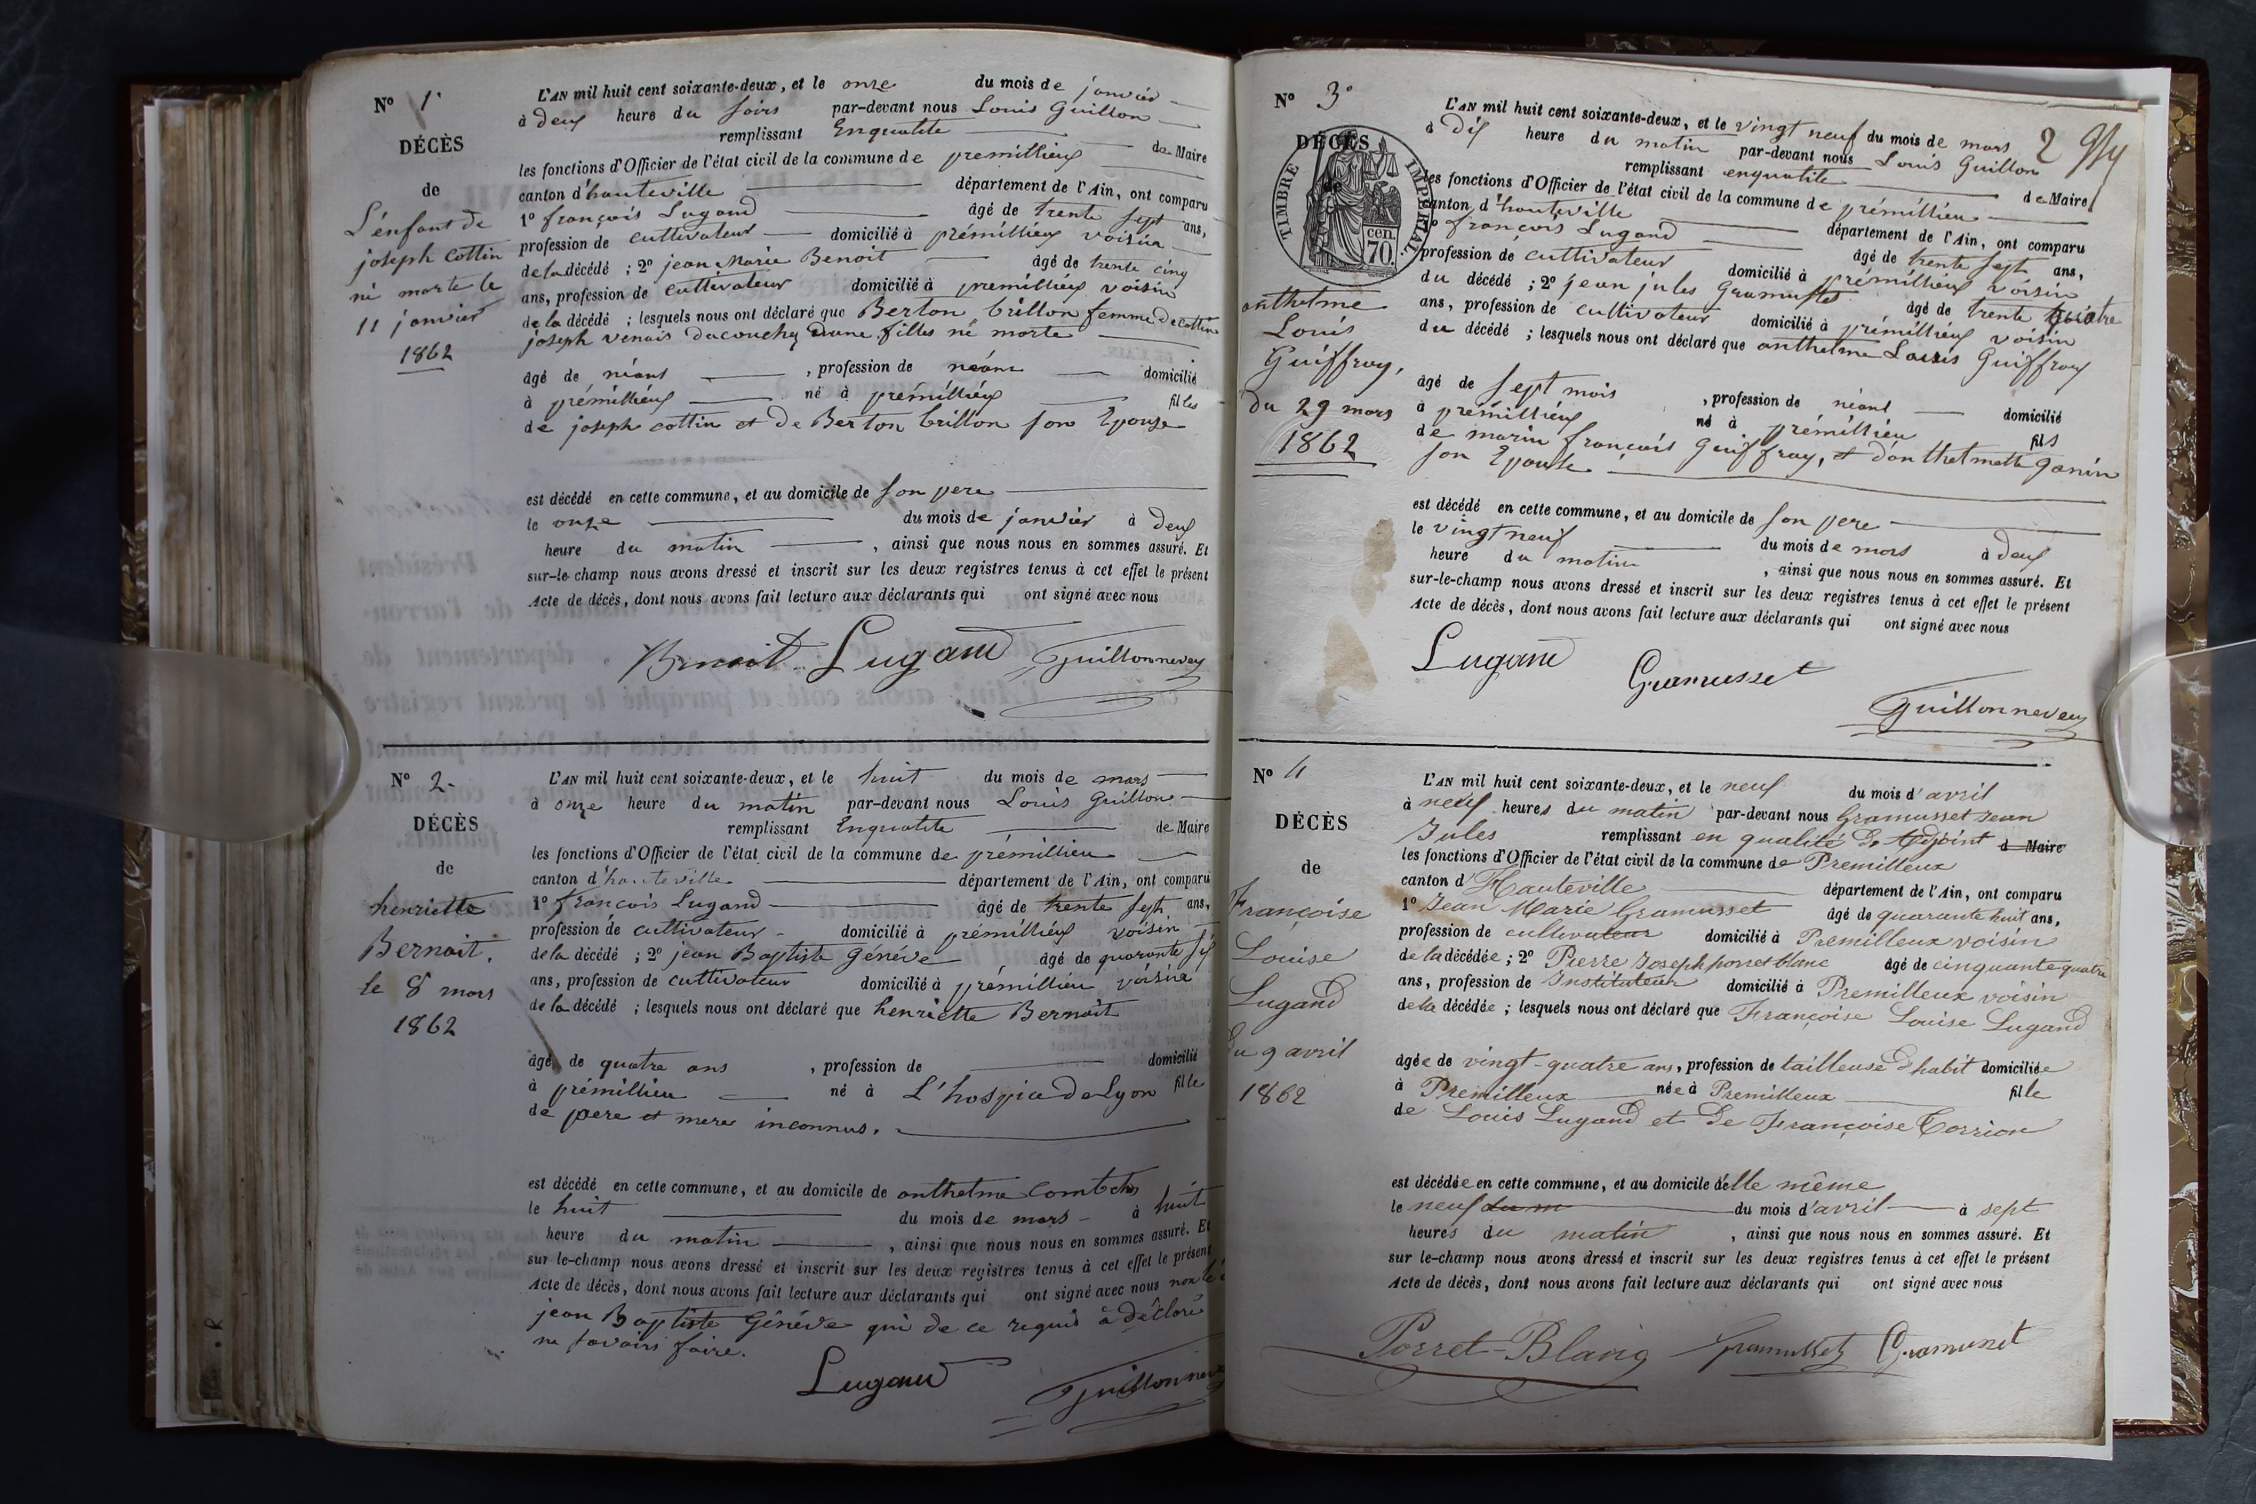 N° 1°
DÉCÈS
de
L'énfant de
joseph Cottin
né morte le
11 janvier
1862
L'AN mil huit cent soixante-deux, et le onze du mois de janvier
à deux heure du soirs par-devant nous Louis Guillon
remplissant Enqualité de Maire
les fonctions d'Officier de l'état civil de la commune de premillieux
canton d'hauteville département de l'Ain, ont comparu
1° françois Lugand âgé de trente sept ans,
profession de cultivateur domicilié à prémillieux voisin
de la décédé ; 2° jean Marie Benoit âgé de trente cinq
ans, profession de cultivateur domicilié à premillieux voisin
de la décédé ; lesquels nous ont déclaré que Berton brillon femme de Cottin
joseph venais daccouchez dune filles né morte
âgé de néant , profession de néant domicilié
à prémillieux né à prémillieux filles
de joseph cottin et de Berton brillon son Epouse
est décédé en cette commune, et au domicile de son pere
le onze du mois de janvier à deux
heure du matin , ainsi que nous nous en sommes assuré. Et
sur-le-champ nous avons dressé et inscrit sur les deux registres tenus à cet effet le présent
Acte de décès, dont nous avons fait lecture aux déclarants qui ont signé avec nous
Benoit Lugand Guillonneveu
N° 2-
DÉCÈS
de
henriette
Bernoit.
le 8 mars
1862
L'AN mil huit cent soixante-deux, et le huit du mois de mars
à onze heure du matin par-devant nous Louis Guillon
remplissant Enqualité de Maire
les fonctions d'Officier de l'état civil de la commune de prémillieu
canton d'hauteville département de l'Ain, ont comparu
1° francois Lugand âgé de trente sept ans,
profession de cultivateur domicilié à prémillieux voisin
de la décédé ; 2° jean Baptiste Généve âgé de quarante six
ans, profession de cultivateur domicilié à prémillieu voisin
de la décédé ; lesquels nous ont déclaré que henriette Bernoit
âgé de quatre ans , profession de domicilié
à prémillieu né à L'hospice de Lyon fille
de pere et mere inconnus.
est décédé en cette commune, et au domicile de anthelme
le huit du mois de mars à huit
heure du matin , ainsi que nous nous en sommes assuré. Et
sur le-champ nous avons dressé et inscrit sur les deux registres tenus à cet effet le présent
Acte de décès, dont nous avons fait lecture aux déclarants qui ont signé avec nous non le
jean Baptiste Généve qui de ce requis à déclaré
ne savoirs faire.
Lugand Guillonneveu
N° 3°
DÉCÈS
de
TIMBRE IMPÉRIAL.
cen.
70.
anthelme
Louis
Guiffray,
du 29 mars
1862
2
L'AN mil huit cent soixante-deux, et le vingt neuf du mois de mars
à Dix heure du matin par-devant nous Louis Guillon
remplissant enqualité de Maire
les fonctions d'Officier de l'état civil de la commune de prémillieu
canton d'hauteville département de l'Ain, ont comparu
1° françois Lugand âgé de trente sept ans,
profession de cultivateur domicilié à prémillieux voisin
du décédé ; 2° jean jules Gramusset âgé de trente quatre
ans, profession de cultivateur domicilié à prémillieux voisin
du décédé ; lesquels nous ont déclaré que anthelme Louis Guiffray
âgé de sept mois , profession de néant domicilié
à prémillieux né à prémillieu fils
de marin françois Guiffray, et d'anthelmette Ganin
son Epouse
est décédé en cette commune, et au domicile de son pere
le vingt neuf du mois de mars à deux
heure du matin , ainsi que nous nous en sommes assuré. Et
sur-le-champ nous avons dressé et inscrit sur les deux registres tenus à cet effet le présent
Acte de décès, dont nous avons fait lecture aux déclarants qui ont signé avec nous
Lugand Gramusset Guillonneveu
N° 4
DÉCÈS
de
Françoise
Louise
Lugand
du 9 avril
1862
L'AN mil huit cent soixante-deux, et le neuf du mois d'avril
à neuf heures du matin par-devant nous Gramusset Jean
Jules remplissant en qualité d'Adjoint d Maire
les fonctions d'Officier de l'état civil de la commune de Premilleux
canton d'Hauteville département de l'Ain, ont comparu
1° Jean Marie Gramusset âgé de quarante huit ans,
profession de cultivateur domicilié à Premilleux voisin
de la décédée ; 2° Pierre Joseph porret blanc âgé de cinquante quatre
ans, profession de Instituteur domicilié à Premilleux voisin
de la décédée ; lesquels nous ont déclaré que Françoise Louise Lugand
âgée de vingt-quatre ans, profession de tailleuse d'habit domiciliée
à Premilleux née à Premilleux fille
de Louis Lugand et de Françoise Corrion
est décédée en cette commune, et au domicile d'elle même
le neuf du m du mois d'avril à sept
heures du matin , ainsi que nous nous en sommes assuré. Et
sur le-champ nous avons dressé et inscrit sur les deux registres tenus à cet effet le présent
Acte de décès, dont nous avons fait lecture aux déclarants qui ont signé avec nous
Porret-Blanc Gramusset Gramusset